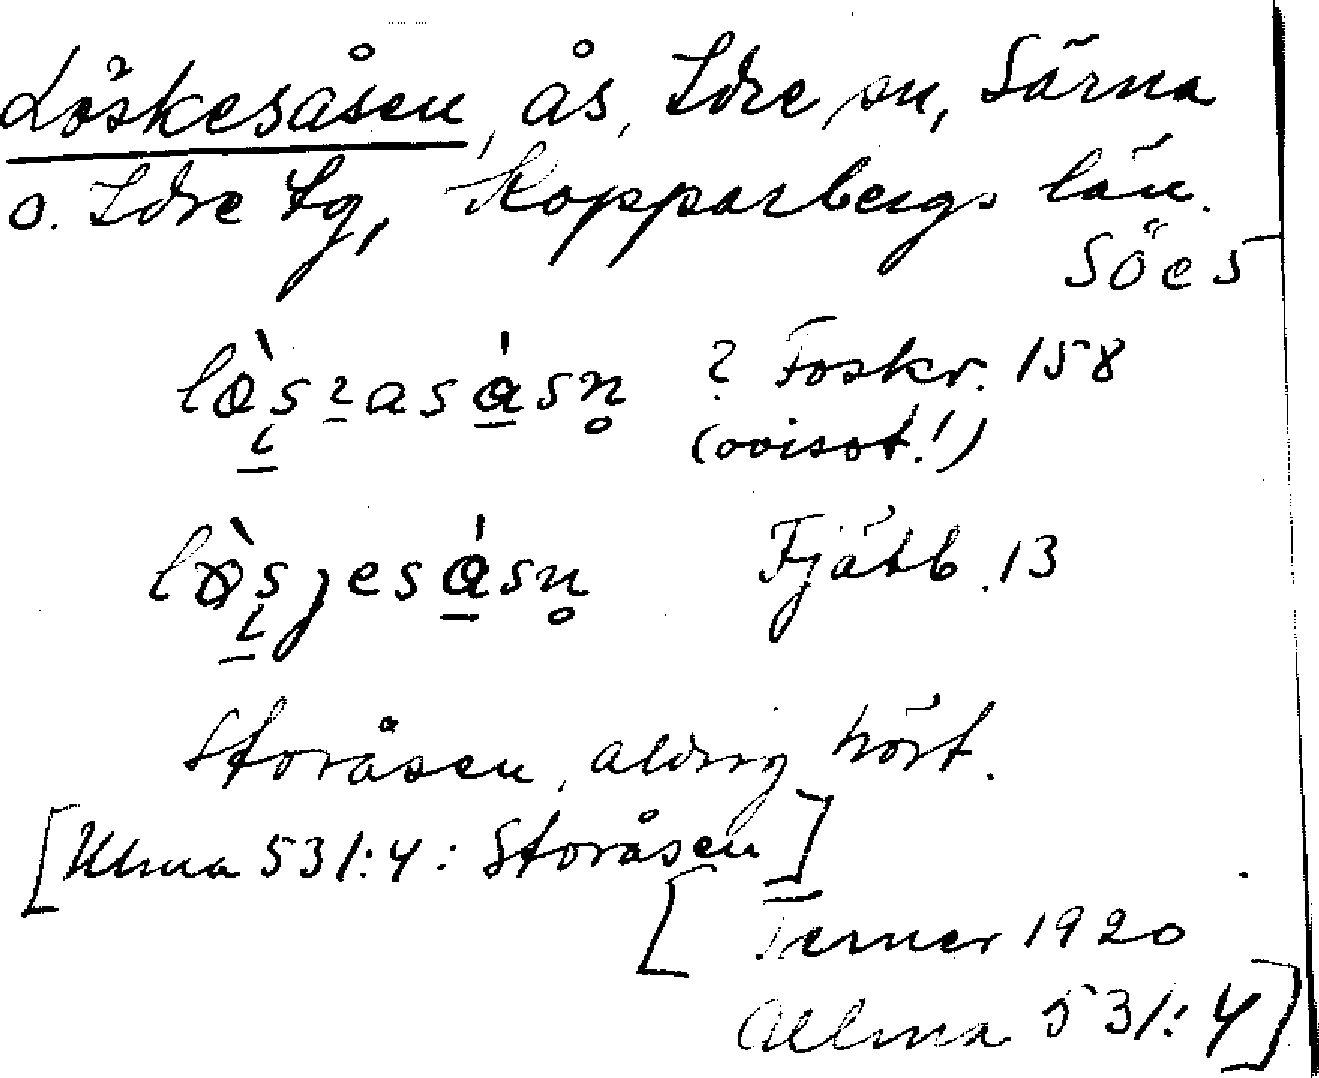 Löskesåsen, ås, Idre sn, Särna
o. Idre tg, Kopparbergs län.
SÖe5
? Foskr. 158
(ovisst!)
Fjätb. 13
Storåsen, aldrig hört.
[Ulma 531:4: Storåsen]
[Terner 1920
Ulma 531:4]